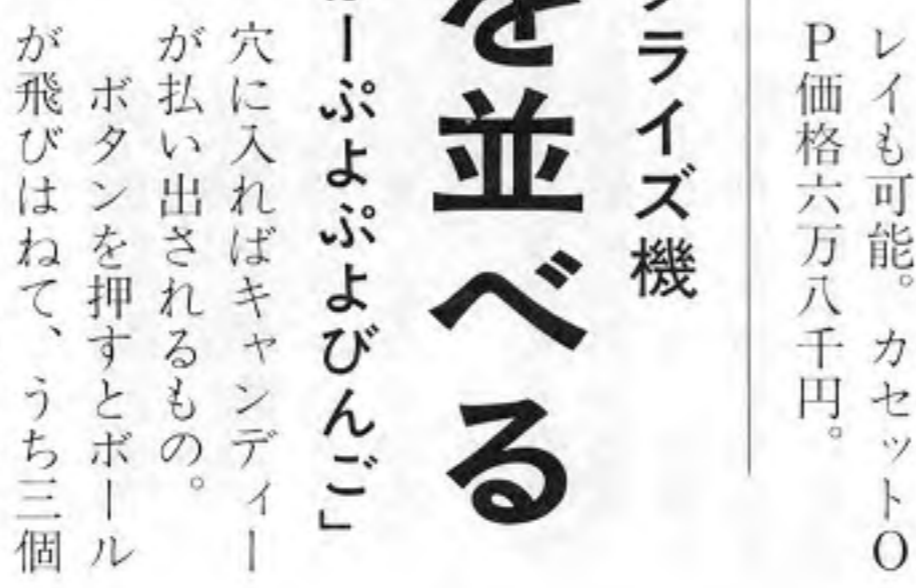 レイも可能。カセットO
P価格六万八千円。
ライズ機
を並べる
ーぷよぷよびんご」
穴に入ればキャンディー
が払い出されるもの。
ボタンを押すとボール
が飛びはねて、うち三個